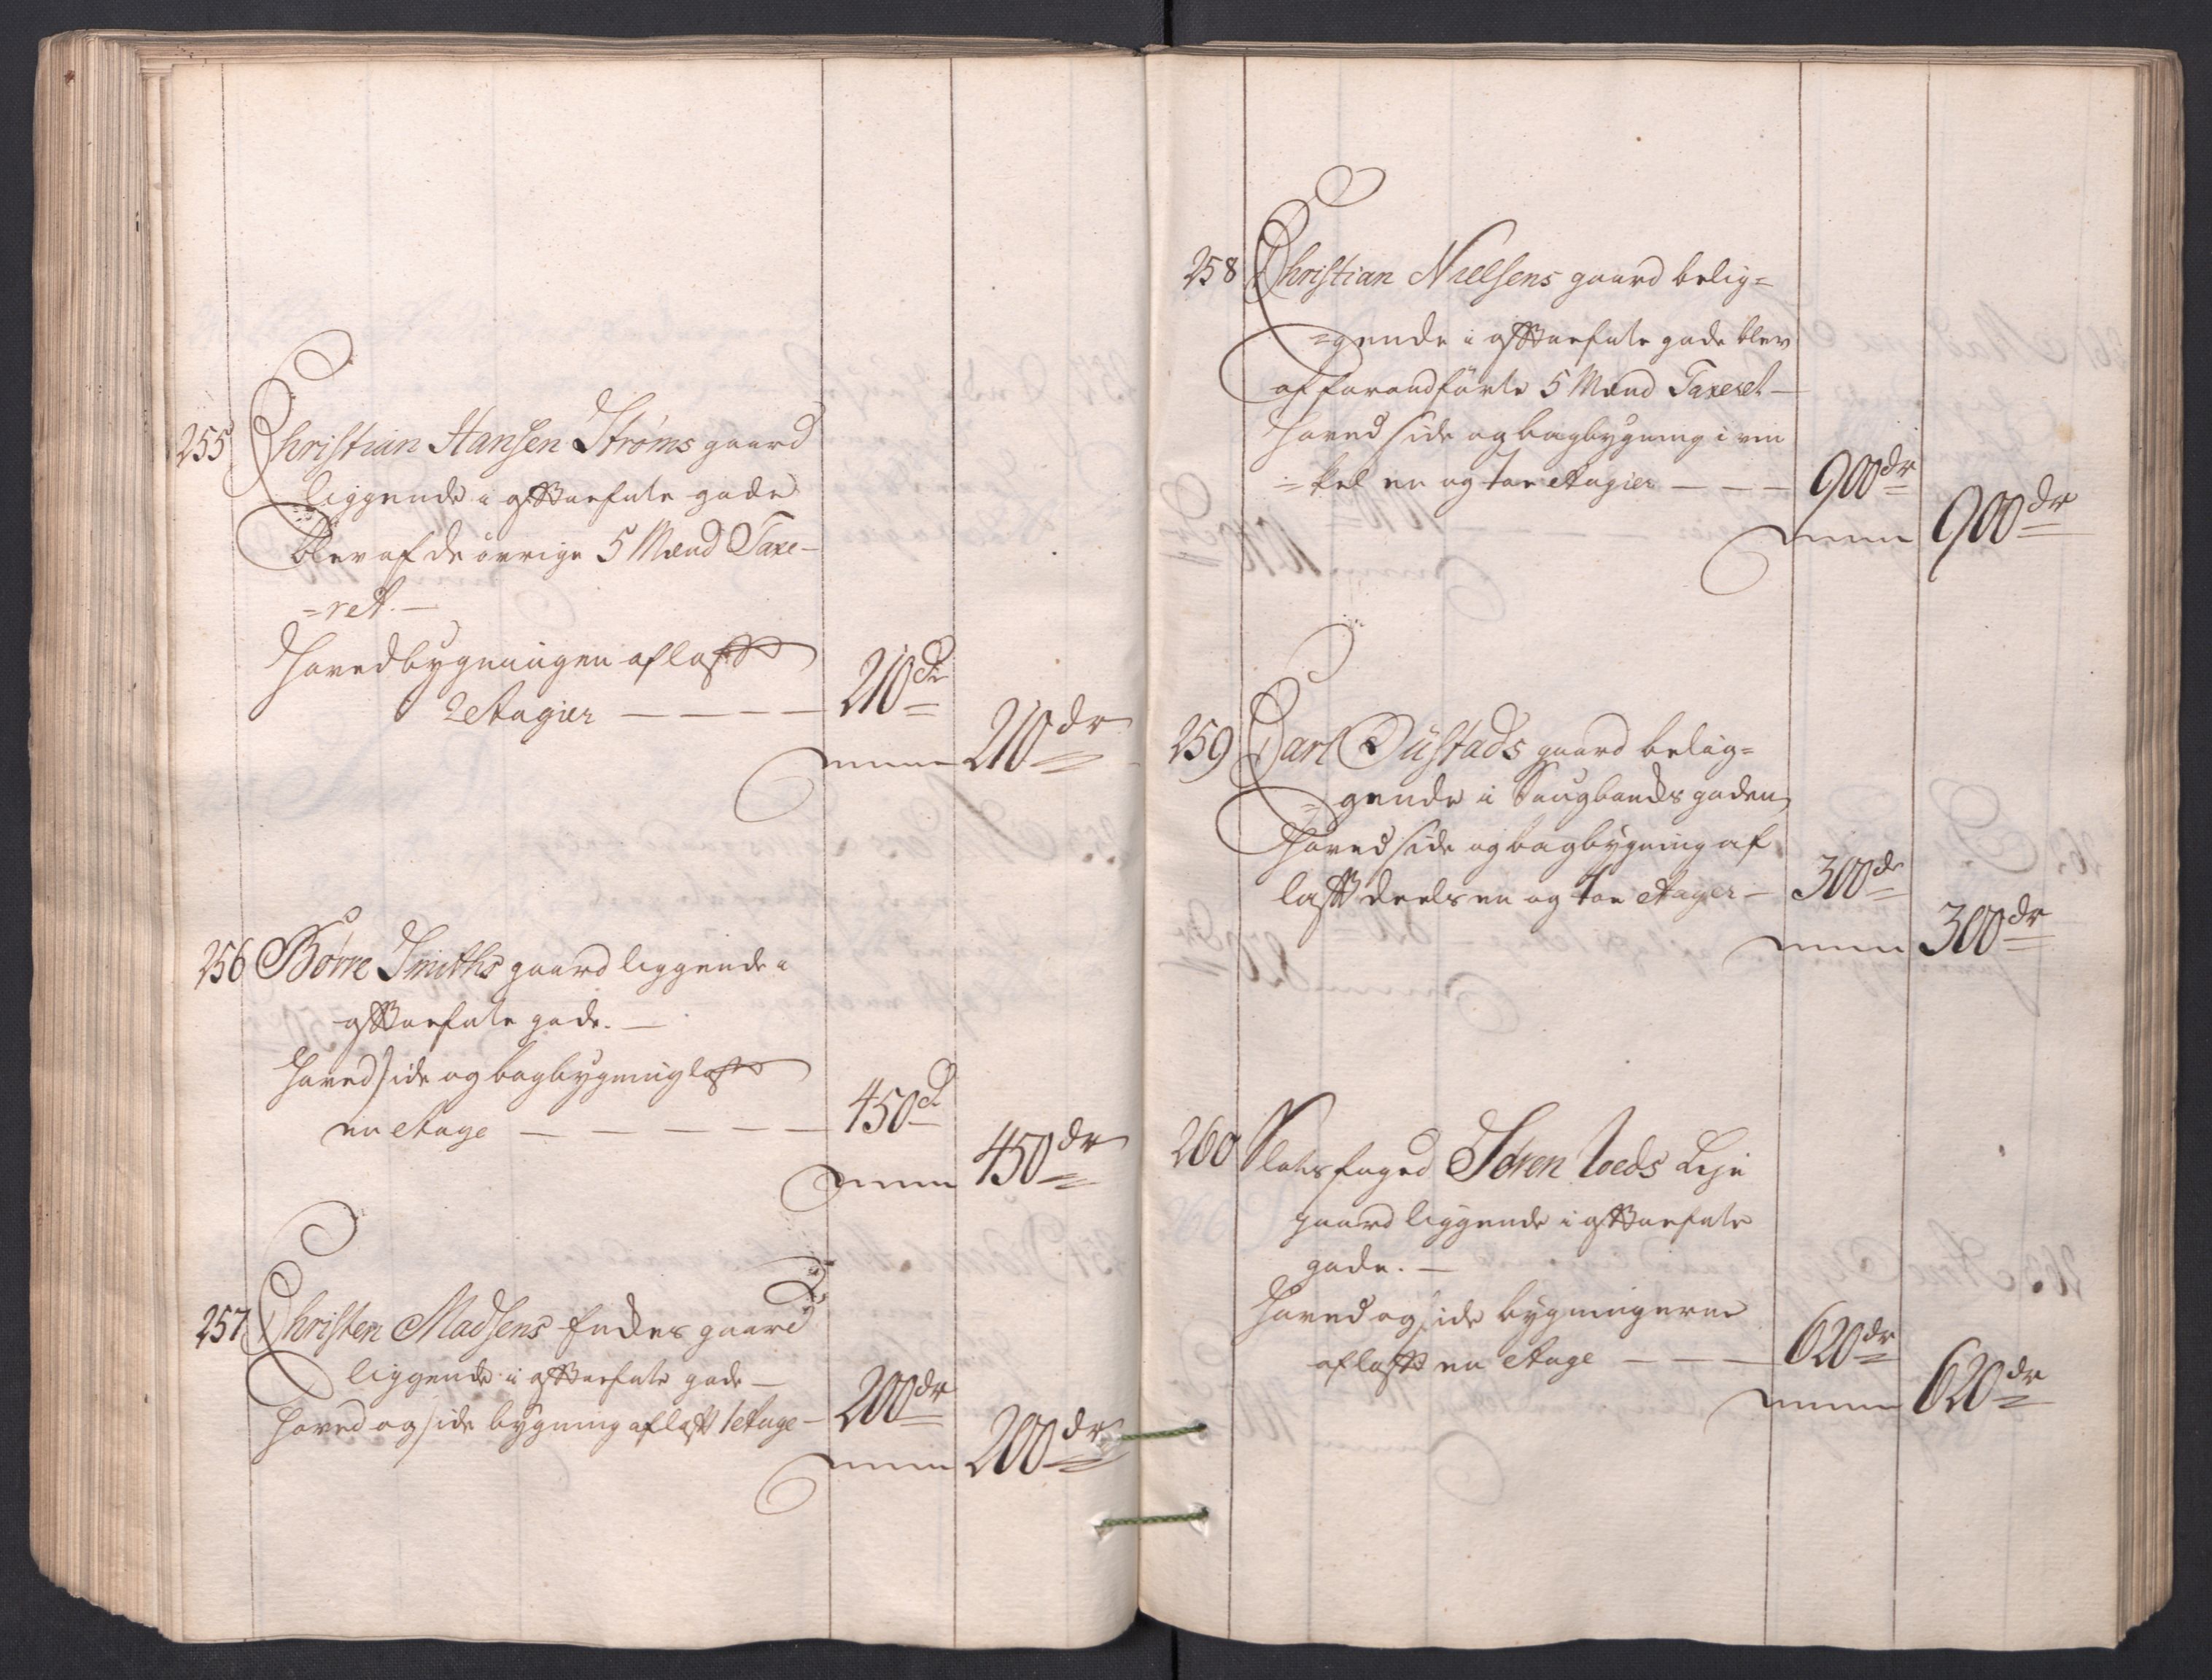 255 Christian Hansen Strøms gaard
liggende i gade
blev af de övrige 5 Mænd Taxe-
=ret.—
Hovedbygningen af laft
2 Etagier — — — — 210 dr
210 dr
256 Børre Smiths gaard liggende i
gade.—
Hoved side og bagbygning laft
en Etage — — — — — 450 d
450 dr
257 Christen Madsens Enckes gaard
liggende i gade —
Hoved og side bygning af laft 1 Etage — 200 dr
200 dr
258 Christian Nielsens gaard belig=
=gende i gade blev
af foranførte 5 Mænd Taxeret —
Hoved side og bagbygning i vin
=kel en og toe Etagier — — — 900 dr
900 dr
259 Carl gaard belig=
=gende i gaden
Hoved side og bagbygning af
laft deels en og toe Etager — 300 dr
300 dr
260 Slotsfoged Sören Leje
gaard liggende i
gade.—
Hoved og side bygningerne
af laft en Etage — — — 620 dr
620 dr